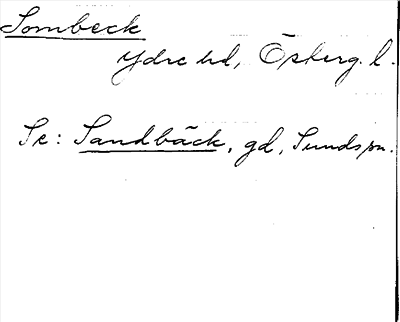 Sombeck
Ydre hd, Österg. l.
Se: Sandbäck, gd, Sunds sn.